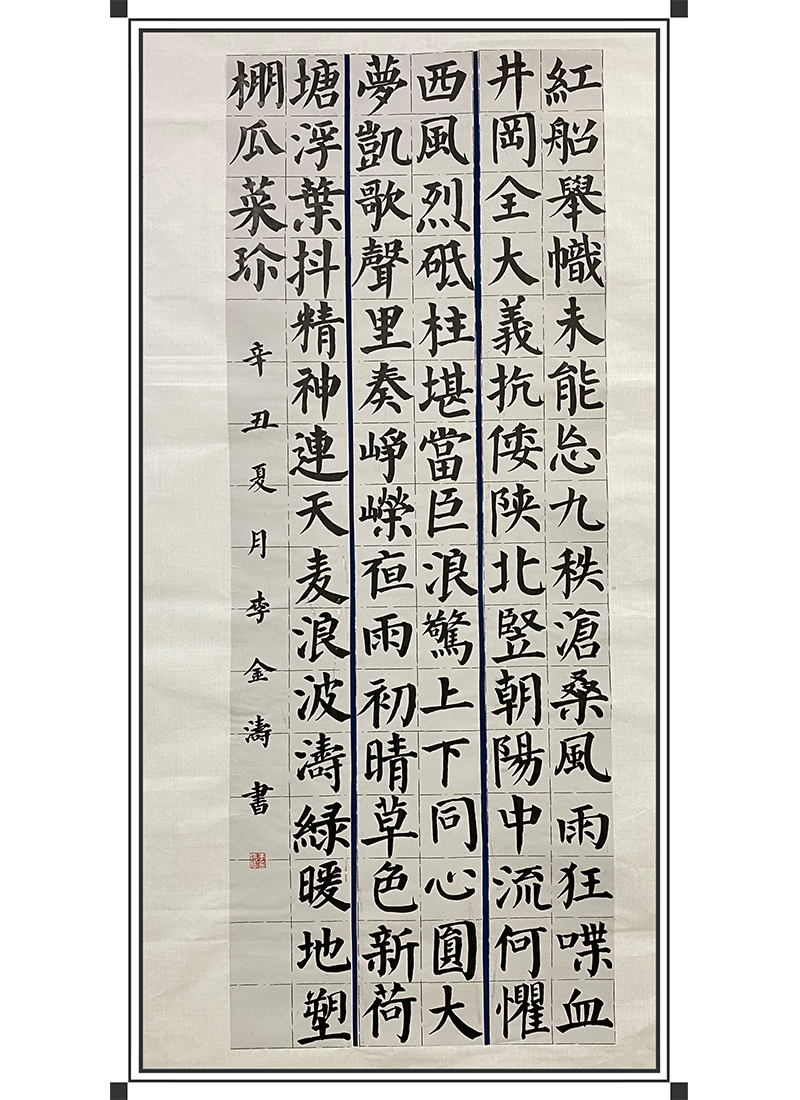 紅船舉幟未能忘九秩滄桑風雨狂喋血
井岡全大義抗倭陕北竪朝陽中流何懼
西風烈砥柱堪當巨浪驚上下同心圓大
夢凱歌聲里奏崢嶸夜雨初晴草色新荷
塘浮葉抖精神連天麦浪波濤緑暖地塑
棚瓜菜珎
辛丑夏月李金濤書